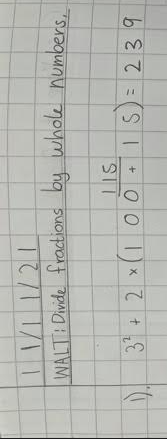 11/11/21
WALT: Divide fractions by whole numbers.
115
1). 3² + 2 × (100 + 15) = 239